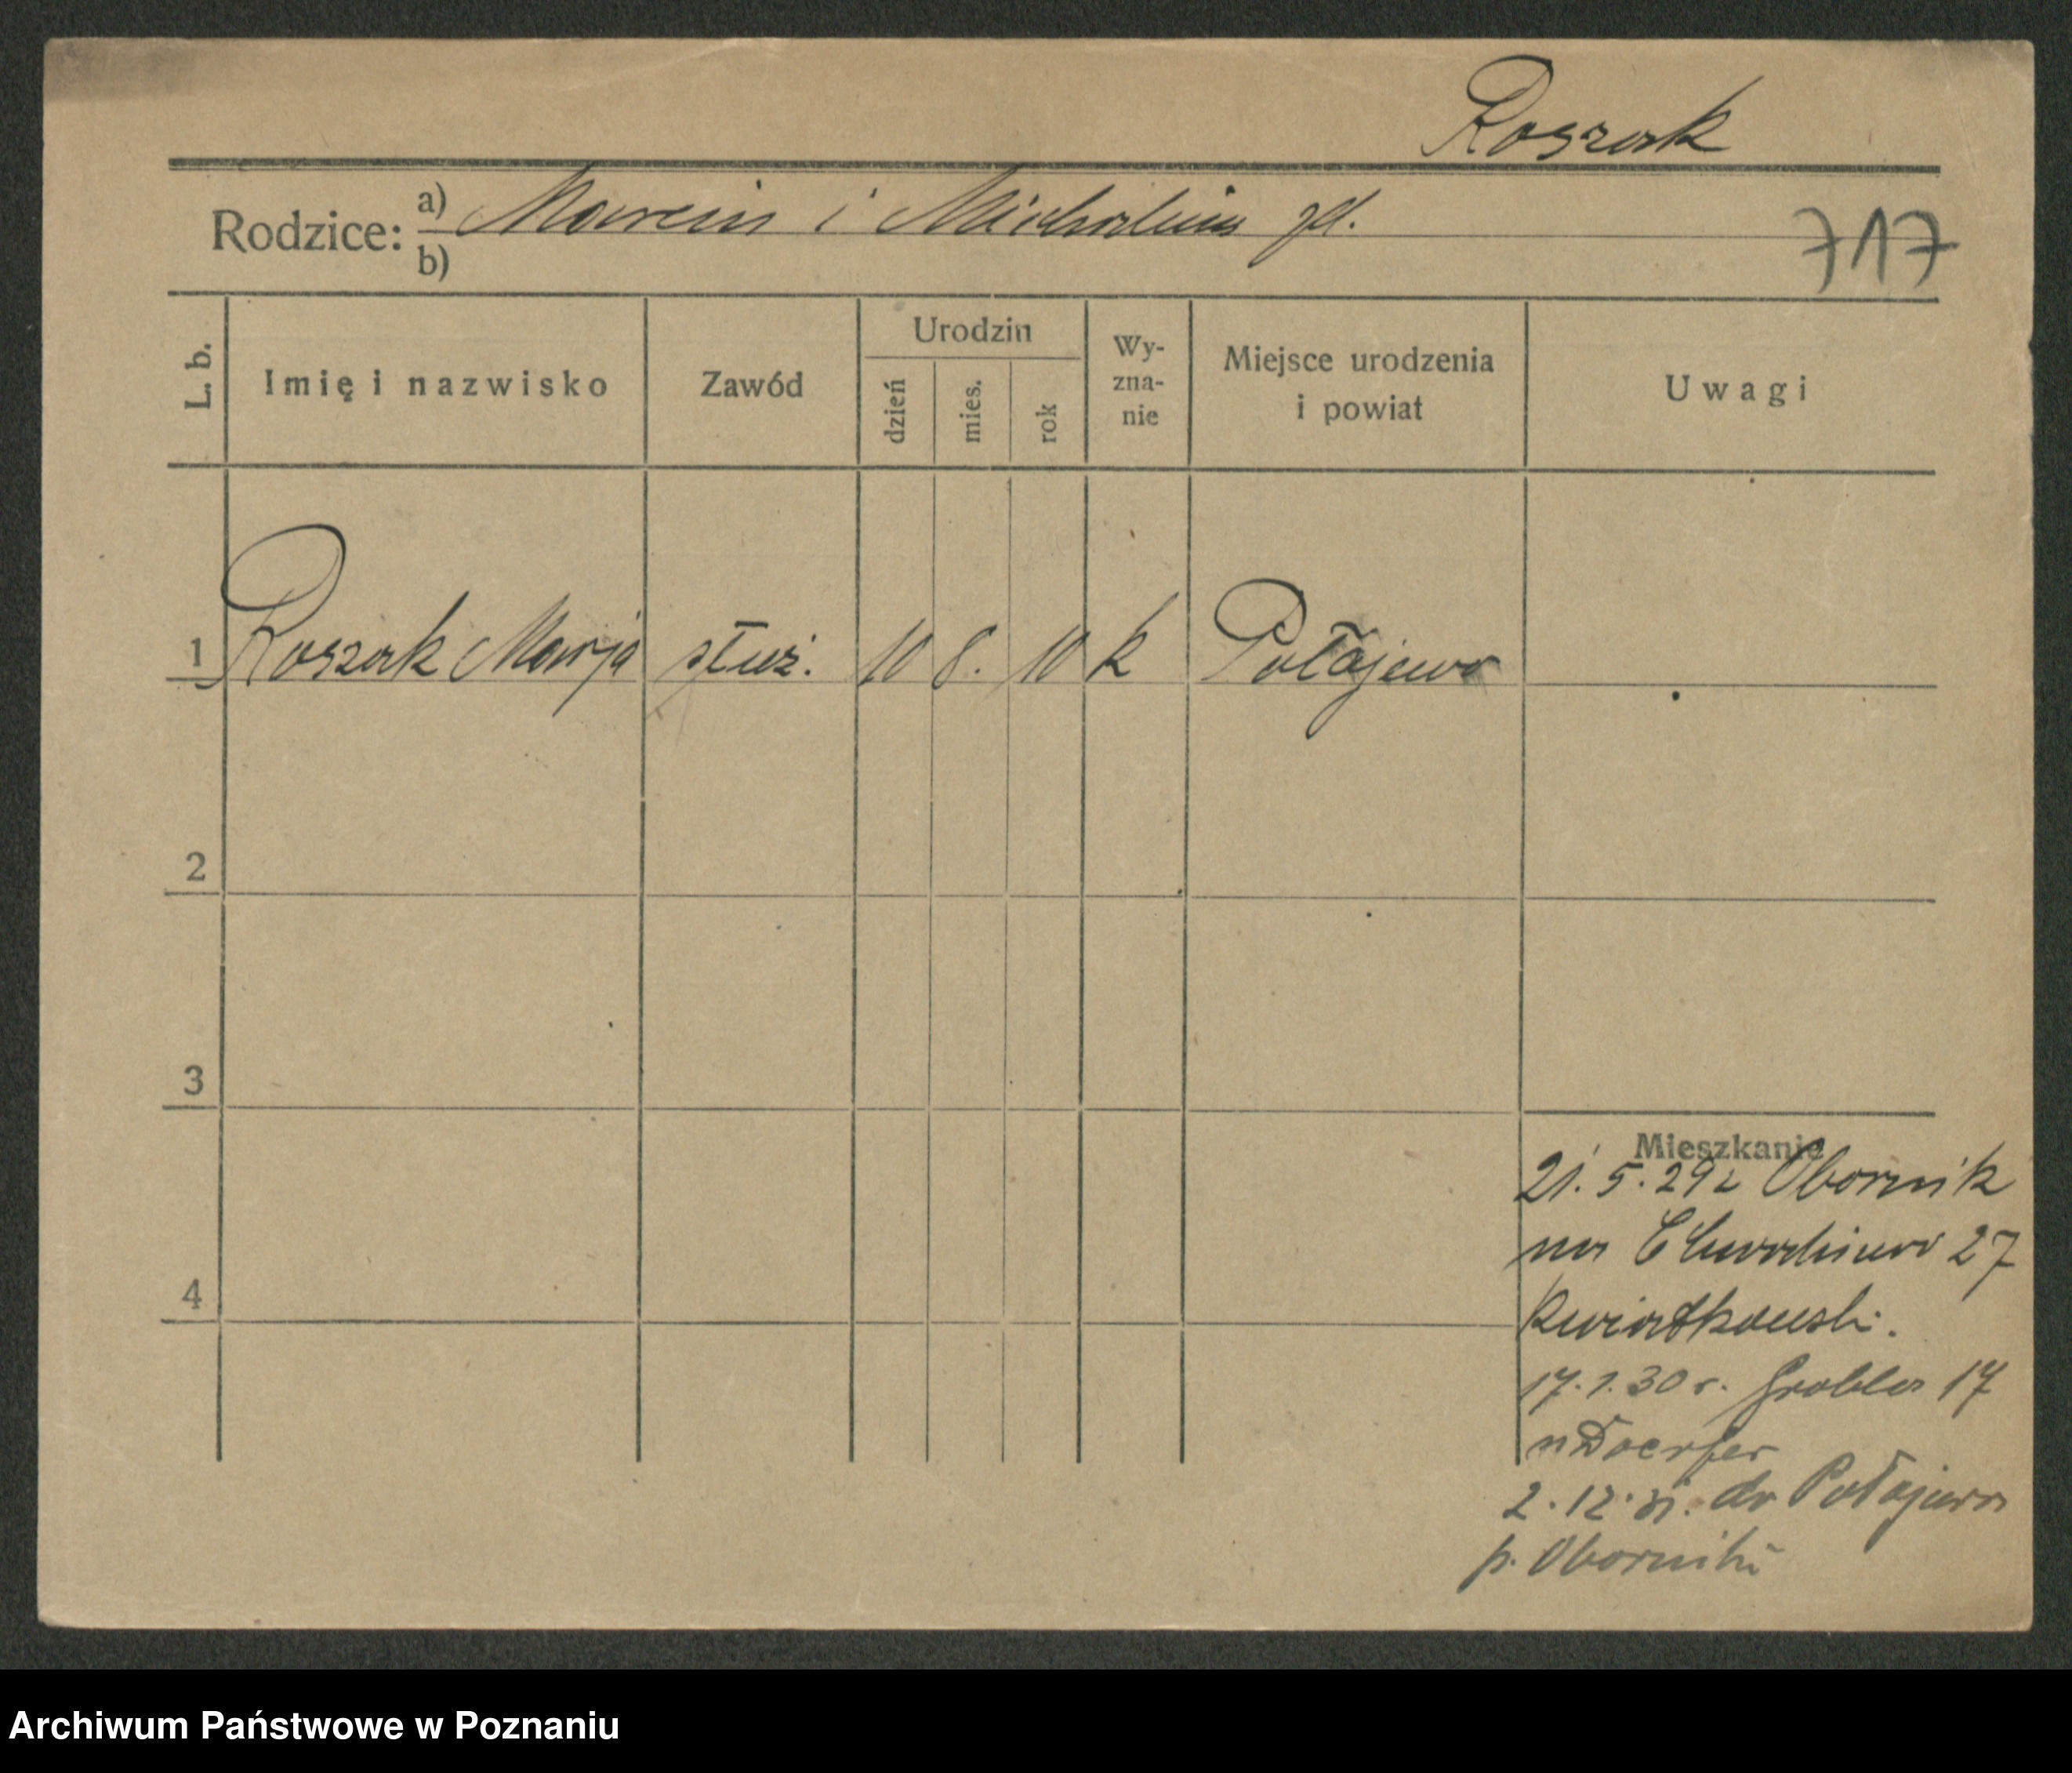 Roszak
Rodzice: a) Marcin i Michalina
b)
717
L. b.
Imię i nazwisko
Zawód
Urodzin
dzień
mies.
rok
Wy-
zna-
nie
Miejsce urodzenia
i powiat
Uwagi
1 Roszak Marja służ. 10 8. 10 k Połajewo
2
3
4
Mieszkanie
21. 5. 29 z Obornik
na Chwaliszewo 27
Kwiatkowski.
17. 1. 30 r. Grobla 17
u Doerfer
2. 12. 31. do Połajewa
p. Oborniki
Archiwum Państwowe w Poznaniu